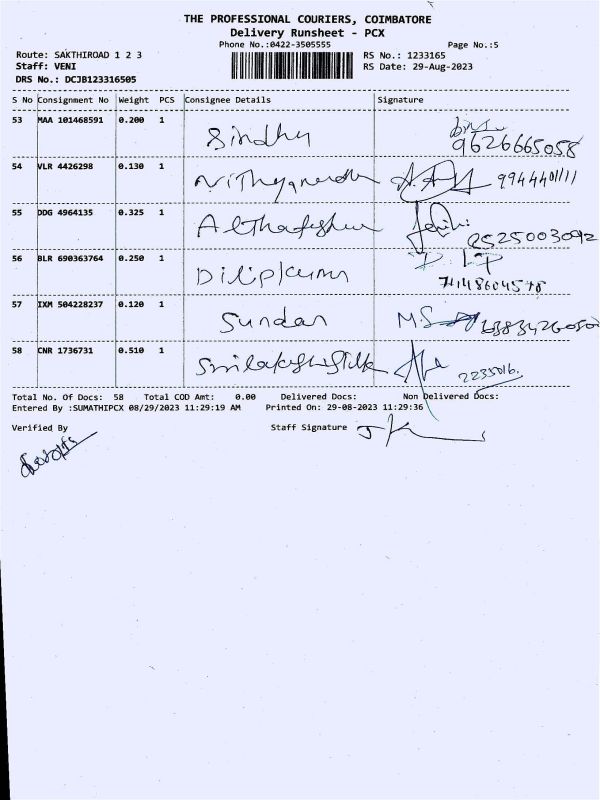 THE PROFESSIONAL COURIERS, COIMBATORE
Delivery Runsheet - PCX
Phone No.:0422-3505555 Page No.:5
Route: SAKTHIROAD 1 2 3 RS No.: 1233165
Staff: VENI RS Date: 29-Aug-2023
DRS No.: DCJB123316505
S No Consignment No Weight PCS Consignee Details Signature
53 MAA 101468591 0.200 1 Sindhu 9626665058
54 VLR 4426298 0.130 1 9944401111
55 DDG 4964135 0.325 1 9525003092
56 BLR 690363764 0.250 1 Dilipkumar
57 IXM 504228237 0.120 1 Sundar M.S
58 CNR 1736731 0.510 1 2235016.
Total No. Of Docs: 58 Total COD Amt: 0.00 Delivered Docs: Non Delivered Docs:
Entered By :SUMATHIPCX 08/29/2023 11:29:19 AM Printed On: 29-08-2023 11:29:36
Verified By Staff Signature